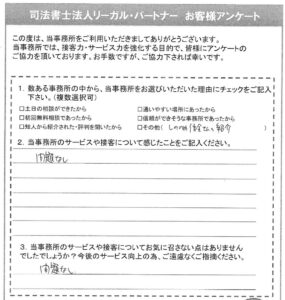 司法書士法人リーガル・パートナー お客様アンケート
この度は、当事務所をご利用いただきましてありがとうございます。
当事務所では、接客力・サービス力を強化する目的で、皆様にアンケートの
ご協力を頂いております。お手数ですが、ご協力下されば幸いです。
1. 数ある事務所の中から、当事務所をお選びいただいた理由にチェックをご記入
下さい。(複数選択可)
□土日の相談ができたから □通いやすい場所にあったから
□初回無料相談であったから □信頼ができそうな事務所であったから
□知人から紹介された・評判を聞いたから □その他( 紹介 )
2. 当事務所のサービスや接客について感じたことをご記入ください。
問題なし
3. 当事務所のサービスや接客についてお気に召さない点はありません
でしたでしょうか?今後のサービス向上の為、ご遠慮なくご指摘ください。
問題なし